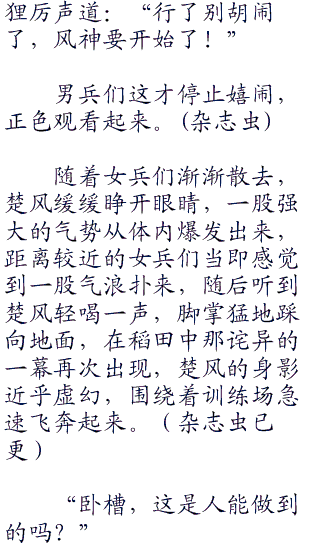 狸厉声道：“行了别胡闹
了，风神要开始了！”
男兵们这才停止嬉闹，
正色观看起来。（杂志虫）
随着女兵们渐渐散去，
楚风缓缓睁开眼睛，一股强
大的气势从体内爆发出来，
距离较近的女兵们当即感觉
到一股气浪扑来，随后听到
楚风轻喝一声，脚掌猛地踩
向地面，在稻田中那诧异的
一幕再次出现，楚风的身影
近乎虚幻，围绕着训练场急
速飞奔起来。（杂志虫已
更）
“卧槽，这是人能做到
的吗？”